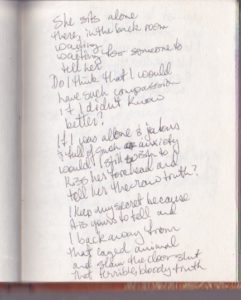 She sits alone
there, in the back room
waiting,
waiting for someone to
tell her
Do I think that I would
have such compassion
if I didn't know
better?
If I was alone & jealous
& full of such anxiety
would I still to
kiss her forehead and
tell her the raw truth?
I keep my secret because
its yours to tell and
I back away from
that caged animal
and slam the door shut
that terrible, bloody truth